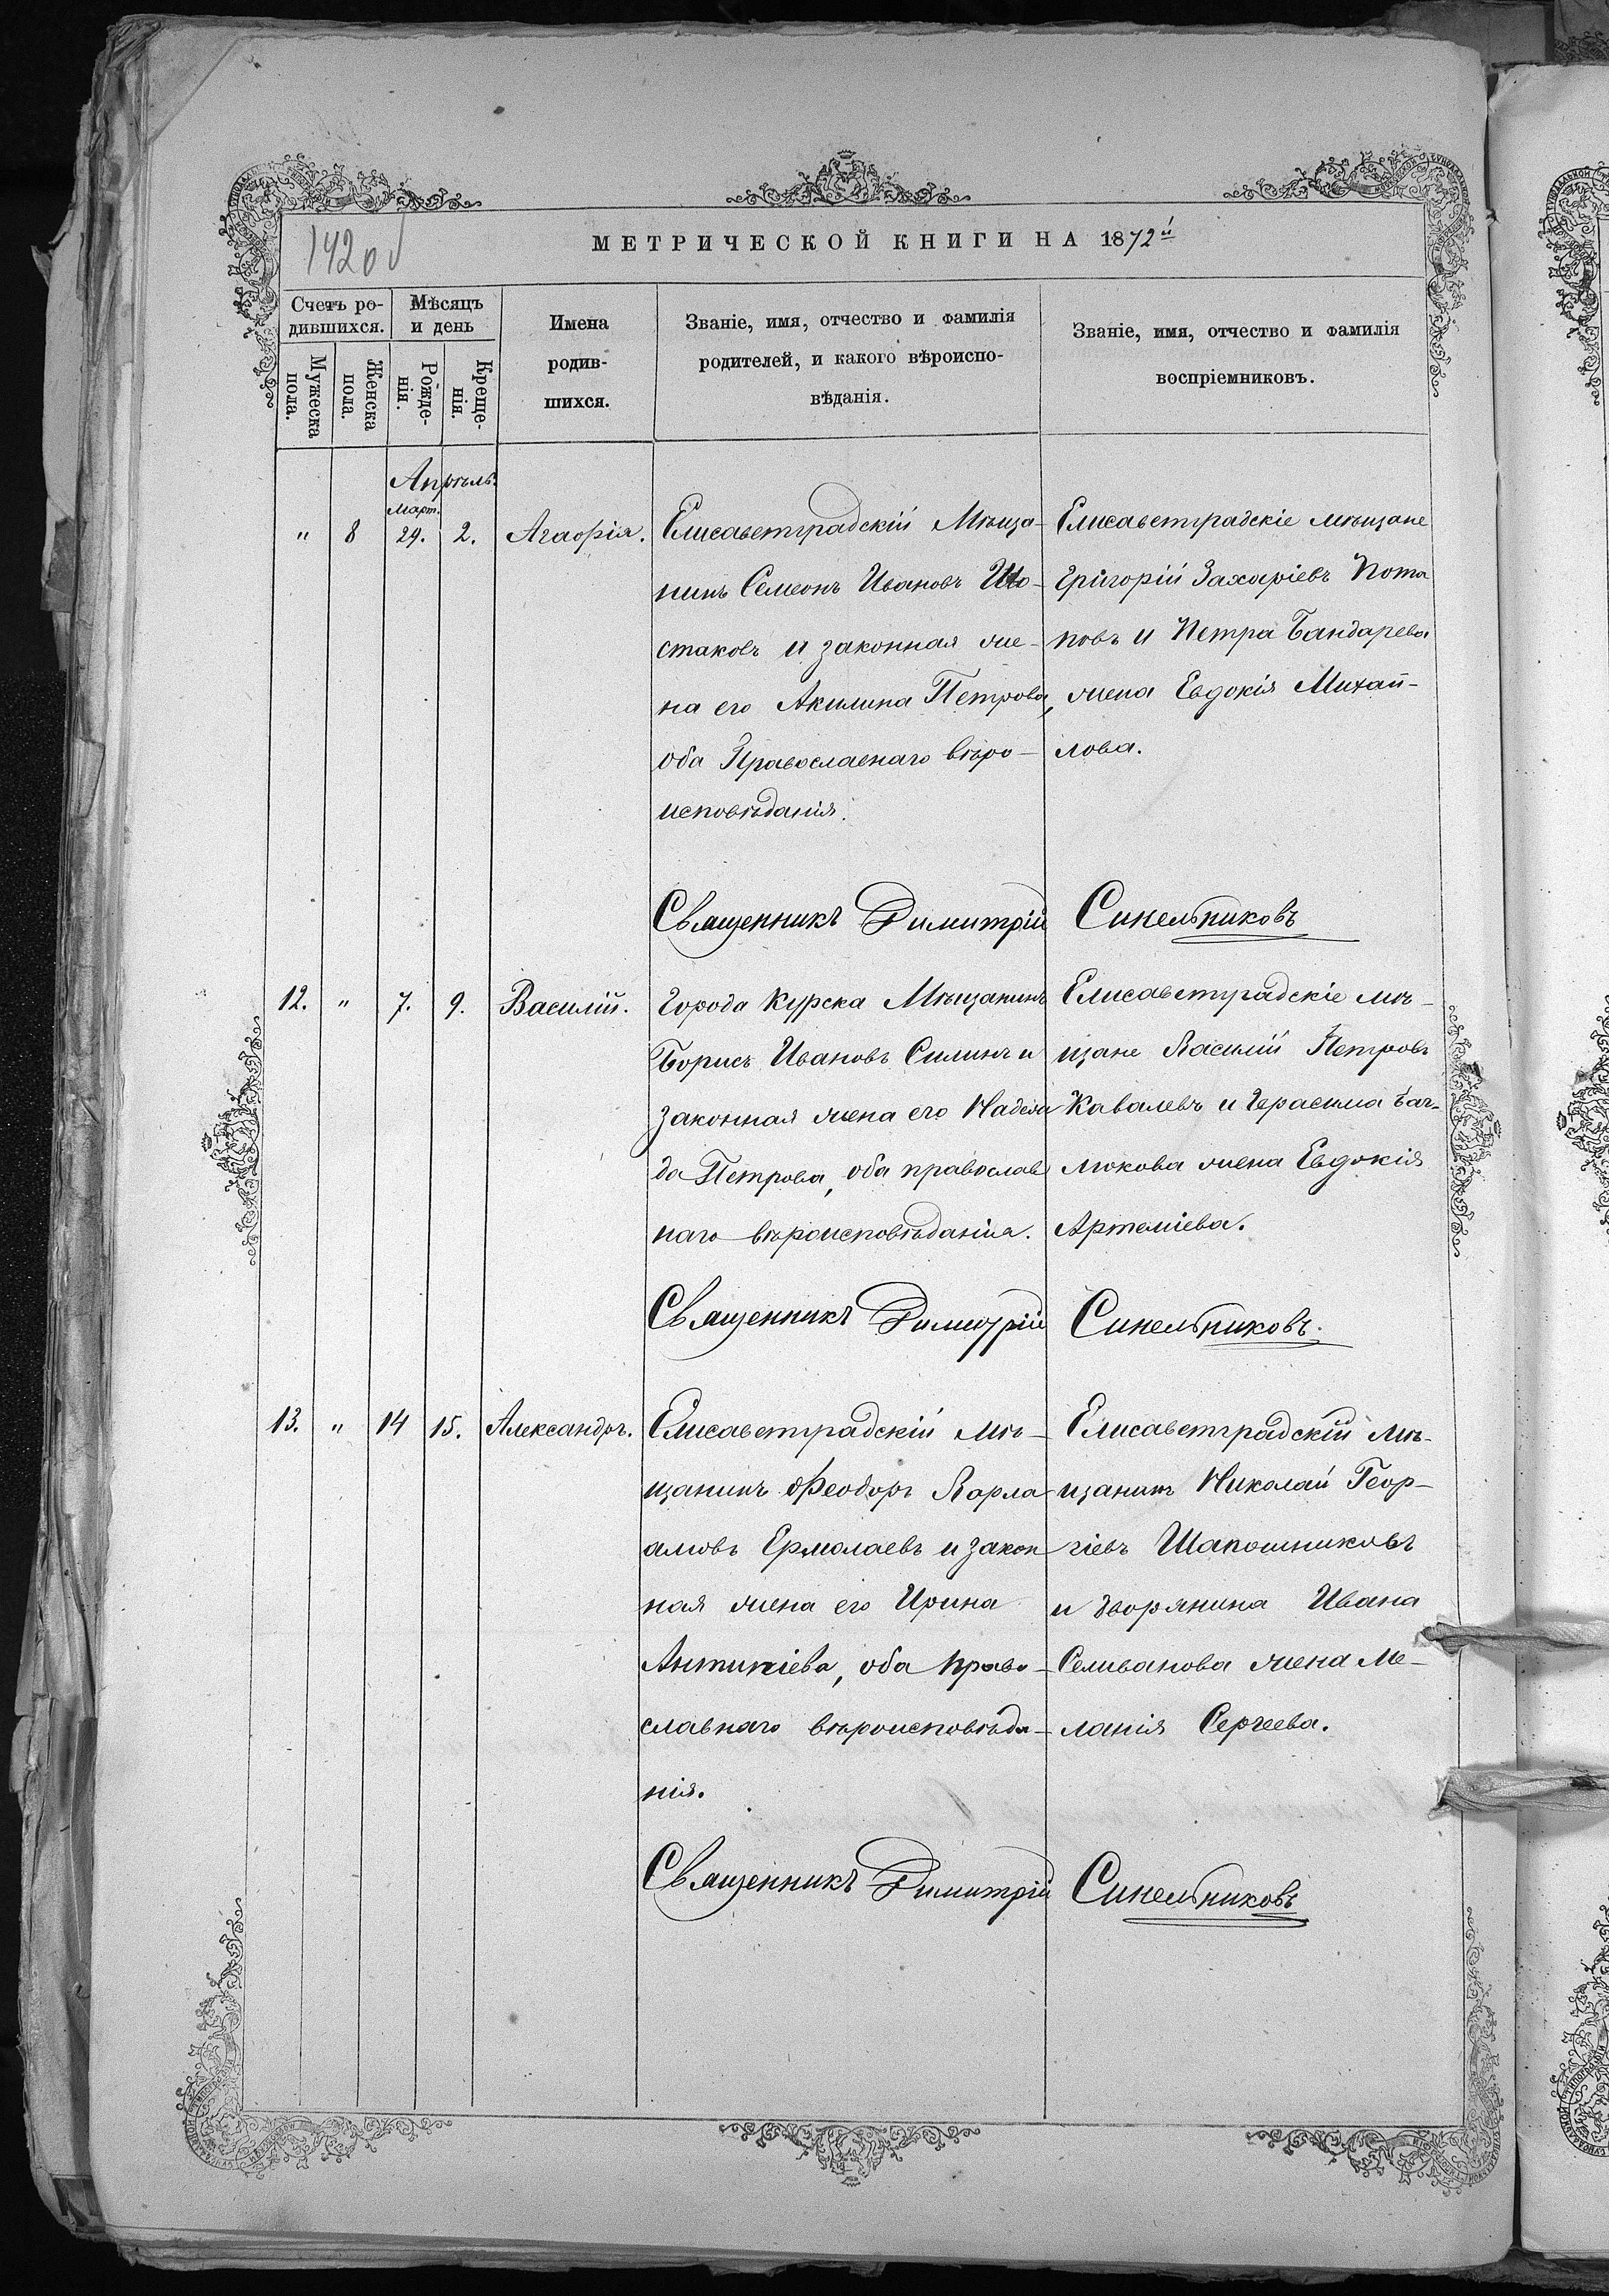 142 об
МЕТРИЧЕСКОЙ КНИГИ НА 1872й
Счетъ ро-
дившихся.
Мѣсяцъ
и день
Мужеска
пола.
Женска
пола.
Рожде-
нія.
Креще-
нія.
Имена
родив-
шихся.
Званіе, имя, отчество и фамилія
родителей, и какого вѣроиспо-
вѣданія.
Званіе, имя, отчество и фамилія
воспріемниковъ.
Апрѣль.
Март.
" 8 29. 2. Агафія.
Елисаветградскій Мѣща-
нинъ Семеонъ Ивановъ Шо-
стаковъ и законная же-
на его Акилина Петрова,
оба Православнаго вѣро-
исповѣданія.
Елисаветградскіе мѣщане
Григорій Захаріевъ Пота
повъ и Петра Бандарева
жена Евдокія Михай-
лова.
Священникъ Димитрій Синельниковъ
12. " 7. 9. Василій.
Города Курска Мѣщанинъ
Борисъ Ивановъ Силинъ и
законная жена его Надеж
да Петрова, оба православ
наго вѣроисповѣданія.
Елисаветградскіе мѣ-
щане Василій Петровъ
Кавалевъ и Герасима
жена Евдокія
Артеміева.
Священникъ Димитрій Синельниковъ.
13. " 14 15. Александръ.
Елисаветградскій мѣ-
щанинъ Феодоръ Варла
амовъ Ермолаевъ и закон
ная жена его Ирина
Антипіева, оба право-
славнаго вѣроисповѣда-
нія.
Елисаветградскій мѣ-
щанинъ Николай Геор-
гіевъ Шапошниковъ
и дворянина Ивана
Селиванова жена Ме-
ланія Сергеева.
Священникъ Димитрій Синельниковъ